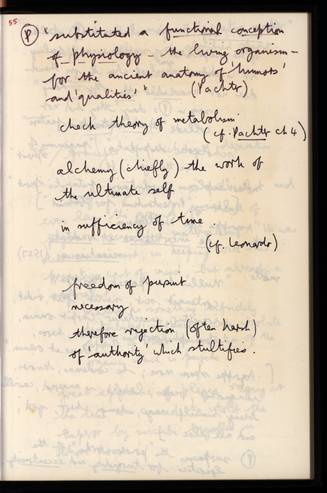 55
(P) "substituted a functional conception
of physiology – the living organism –
for the ancient anatomy of 'humors'
and 'qualities'" (Pachter)
check theory of metabolism
(cf. Pachter ch 4)
alchemy (chiefly) the work of
the ultimate self
in sufficiency of time.
(cf. Leonardo)
freedom of pursuit
necessary
therefore rejection (often harsh)
of authority which stultifies.